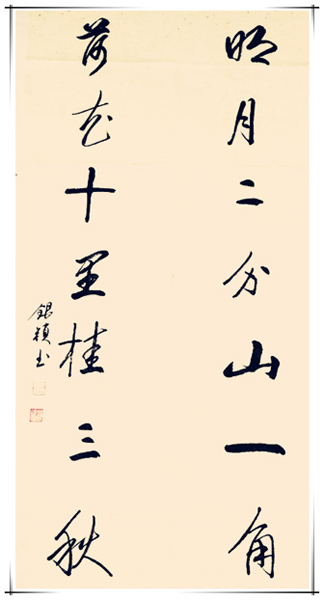 明月二分山一角
荷花十里桂三秋
銀穎书